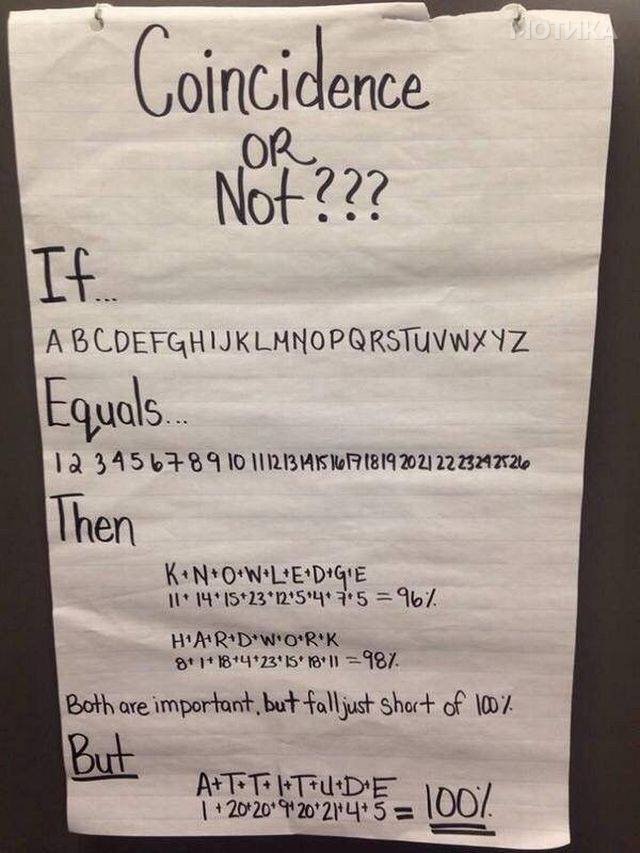 МОТИКА
Coincidence
OR
Not???
If...
A B C D E F G H I J K L M N O P Q R S T U V W X Y Z
Equals...
1 2 3 4 5 6 7 8 9 10 11 12 13 14 15 16 17 18 19 20 21 22 23 24 25 26
Then
K+N+O+W+L+E+D+G+E
11+14+15+23+12+5+4+7+5=96%
H+A+R+D+W+O+R+K
8+1+18+4+23+15+18+11=98%
Both are important, but fall just short of 100%
But
A+T+T+I+T+U+D+E
1+20+20+9+20+21+4+5=100%